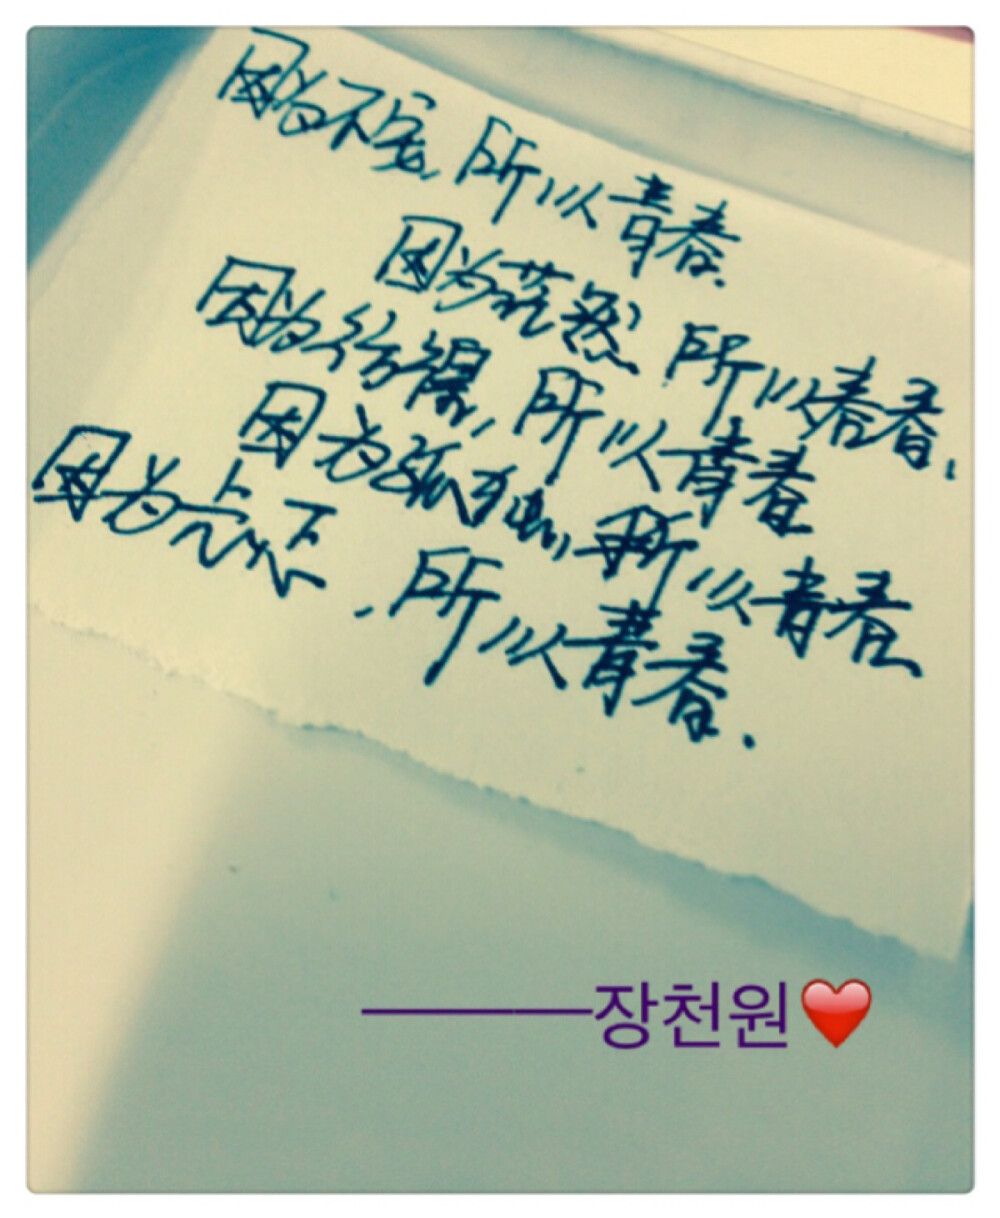 因为不安,所以青春.
因为茫然 所以青春.
因为彷徨,所以青春
因为孤独,所以青春.
因为忐忑,所以青春.
———장천원❤️